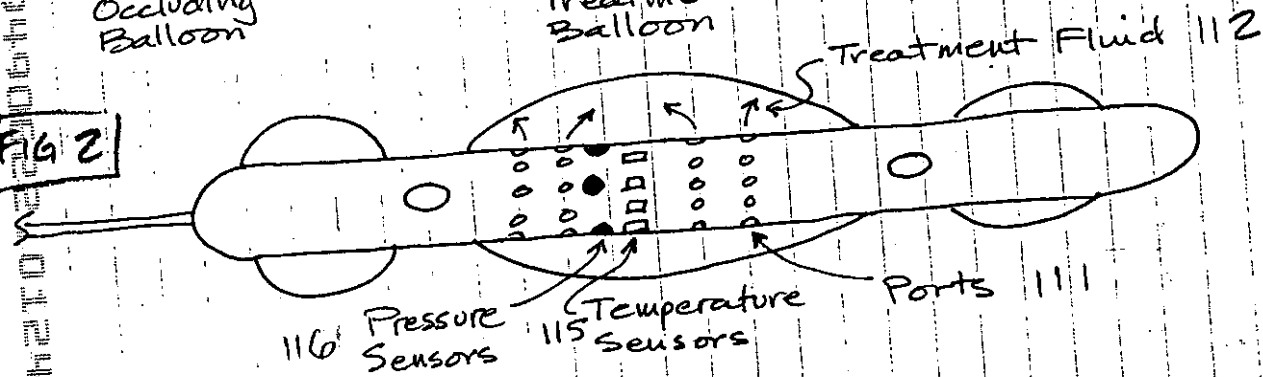 Occluding
Balloon
Balloon
Treatment Fluid 112
FIG 2
Ports 111
116 Pressure
Sensors
115 Temperature
Sensors